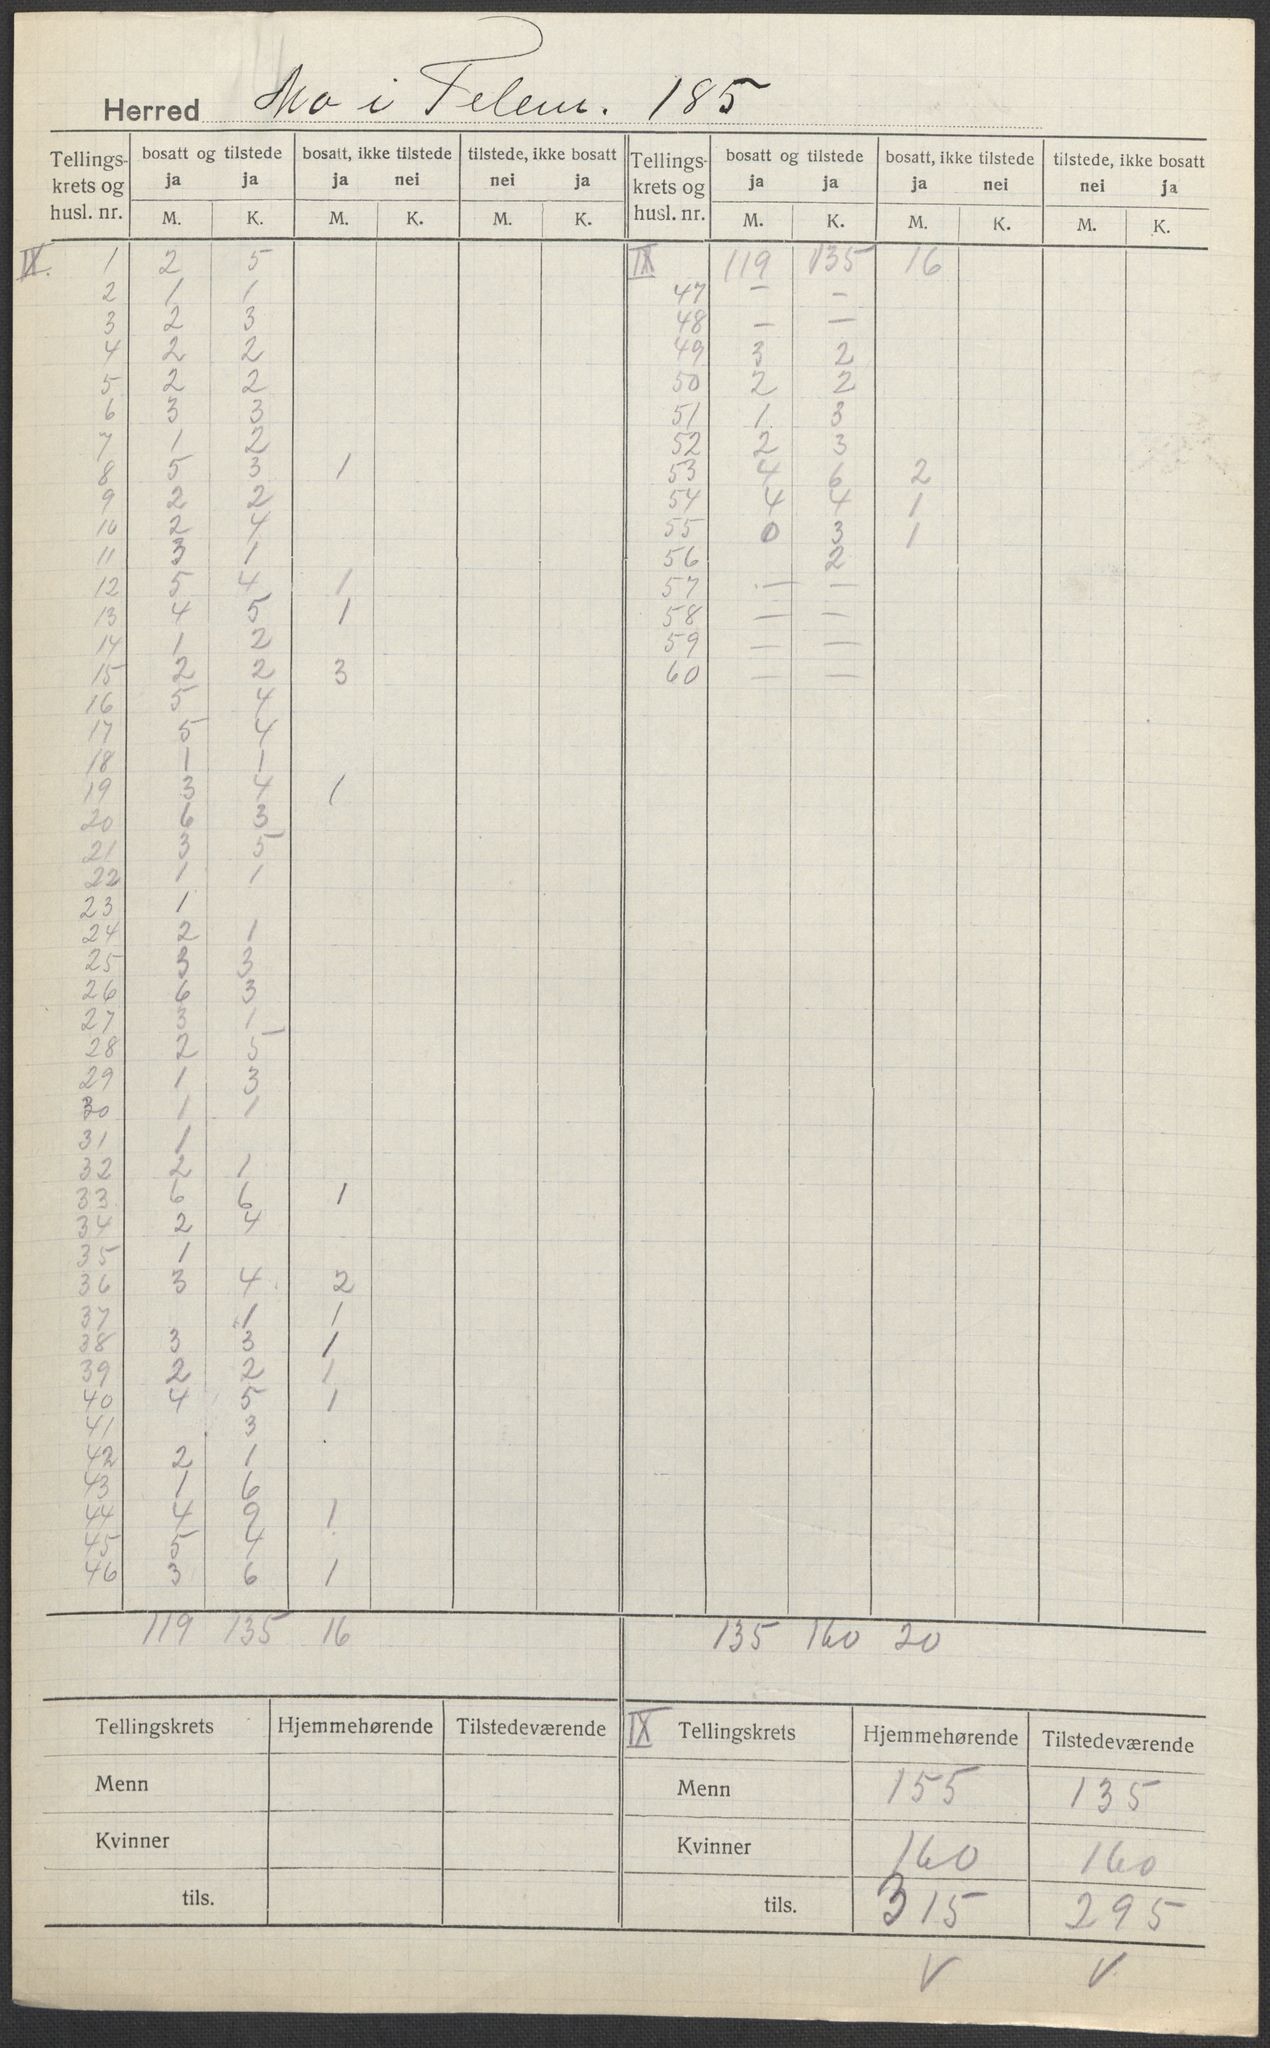 Herred Mo i Telem. 185
Tellings-krets og husl. nr. | bosatt og tilstede ja ja M. K. | bosatt, ikke tilstede ja nei M. K. | tilstede, ikke bosatt nei ja M. K. | Tellings-krets og husl. nr. | bosatt og tilstede ja ja M. K. | bosatt, ikke tilstede ja nei M. K. | tilstede, ikke bosatt nei ja M. K.
IX. 1 2 5
2 1 1
3 2 3
4 2 2
5 2 2
6 3 3
7 1 2
8 5 3 1
9 2 2
10 2 4
11 3 1
12 5 4 1
13 4 5 1
14 1 2
15 2 2 3
16 5 4
17 5 4
18 1 1
19 3 4 1
20 6 3
21 3 5
22 1 1
23 1
24 2 1
25 3 3
26 6 3
27 3 1
28 2 5
29 1 3
30 1 1
31 1
32 2 1
33 6 6 1
34 2 4
35 1
36 3 4 2
37 1 1
38 3 3 1
39 2 2 1
40 4 5 1
41 3
42 2 1
43 1 6
44 4 2 1
45 5 4
46 3 6 1
119 135 16
IX 119 135 16
47 — —
48 — —
49 3 2
50 2 2
51 1 3
52 2 3
53 4 6 2
54 4 4 1
55 0 3 1
56 2
57 — —
58 — —
59 — —
60 — —
135 160 20
Tellingskrets Hjemmehørende Tilstedeværende
Menn
Kvinner
tils.
IX Tellingskrets Hjemmehørende Tilstedeværende
Menn 155 135
Kvinner 160 160
tils. 315 295
V V